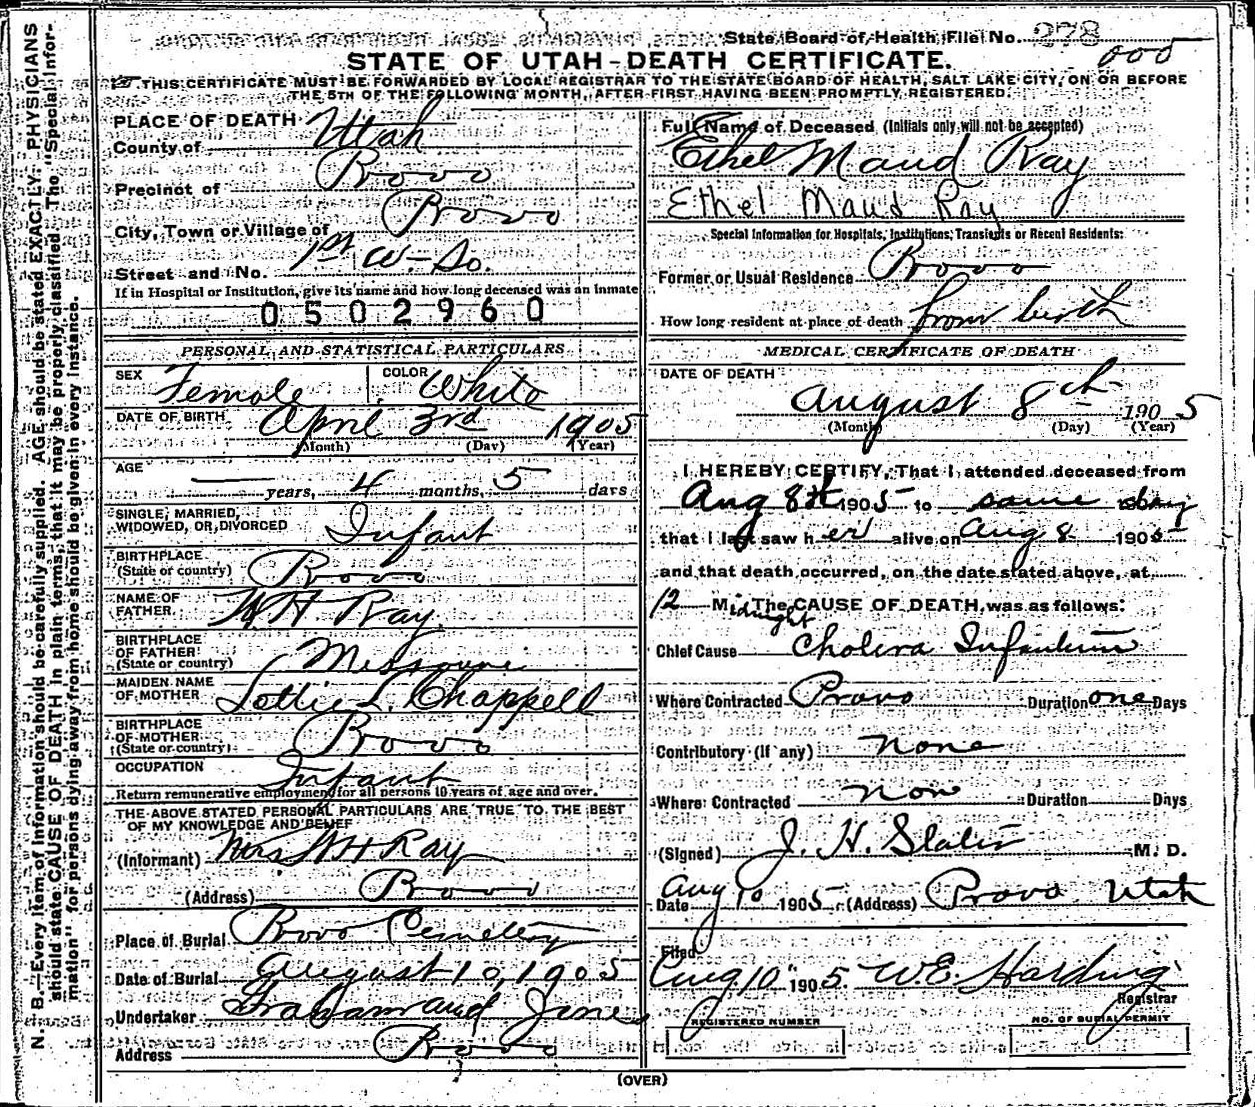 State Board of Health File No. 278
005
STATE OF UTAH-DEATH CERTIFICATE.
THIS CERTIFICATE MUST BE FORWARDED BY LOCAL REGISTRAR TO THE STATE BOARD OF HEALTH, SALT LAKE CITY, ON OR BEFORE
THE 5TH OF THE FOLLOWING MONTH, AFTER FIRST HAVING BEEN PROMPTLY REGISTERED.
N. B.—Every item of information should be carefully supplied. AGE should be stated EXACTLY. PHYSICIANS
should state CAUSE OF DEATH in plain terms, that it may be properly classified. The "Special Infor-
mation" for persons dying away from home should be given in every instance.
PLACE OF DEATH
County of Utah
Precinct of Provo
City, Town or Village of Provo
Street and No. 1st W-So.
If in Hospital or Institution, give its name and how long deceased was an inmate
0502960
PERSONAL AND STATISTICAL PARTICULARS
SEX Female COLOR White
DATE OF BIRTH April 3rd 1905
(Month) (Day) (Year)
AGE
— years, 4 months, 5 days
SINGLE, MARRIED,
WIDOWED, OR DIVORCED Infant
BIRTHPLACE
(State or country) Provo
NAME OF
FATHER W H. Ray
BIRTHPLACE
OF FATHER
(State or country) Missourie
MAIDEN NAME
OF MOTHER Lottie L. Chappell
BIRTHPLACE
OF MOTHER
(State or country) Provo
OCCUPATION Infant
Return remunerative employment for all persons 10 years of age and over.
THE ABOVE STATED PERSONAL PARTICULARS ARE TRUE TO THE BEST
OF MY KNOWLEDGE AND BELIEF
(Informant) Mrs W H Ray
(Address) Provo
Place of Burial Provo Cemetery
Date of Burial August 10, 1905
Undertaker Graham and Jones
Address Provo
Full Name of Deceased (Initials only will not be accepted)
Ethel Maud Ray
Ethel Maud Ray
Special Information for Hospitals, Institutions, Transients or Recent Residents:
Former or Usual Residence Provo
How long resident at place of death from birth
MEDICAL CERTIFICATE OF DEATH
DATE OF DEATH
August 8th 1905
(Month) (Day) (Year)
I HEREBY CERTIFY, That I attended deceased from
Aug 8th 1905 to same day
that I last saw her alive on Aug 8 1905
and that death occurred, on the date stated above, at
12 Midnight The CAUSE OF DEATH was as follows:
Chief Cause Cholera Infantum
Where Contracted Provo Duration one Days
Contributory (if any) none
Where Contracted Non Duration Days
(Signed) J. H. Slater M. D.
Date Aug 10 1905 (Address) Provo Utah
Filed
Aug. 10" 1905. W.E. Harding
Registrar
REGISTERED NUMBER NO. OF BURIAL PERMIT
(OVER)